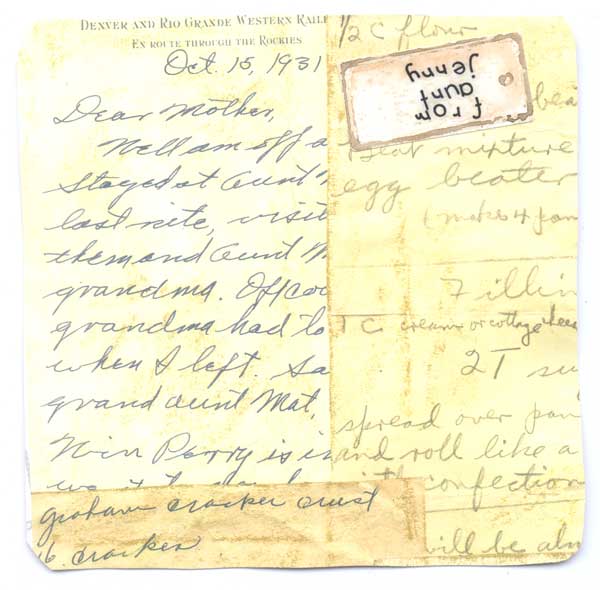 DENVER AND RIO GRANDE WESTERN RAIL
EN ROUTE THROUGH THE ROCKIES
Oct. 15, 1931
Dear Mother,
Well am off a
Stayed at Aunt
last nite, visit
them and Aunt M
grandma. Of cou
grandma had to
when I left. Sa
grand aunt Mat,
Win Perry is in
graham cracker crust
16 cracker
1/2 C flour
from
aunt
jenny
bea
Beat mixture
egg beater
(makes 4 pan
Fillin
1 C cream or cottage chees
2T su
spread over pan
and roll like a
with confection
will be alm